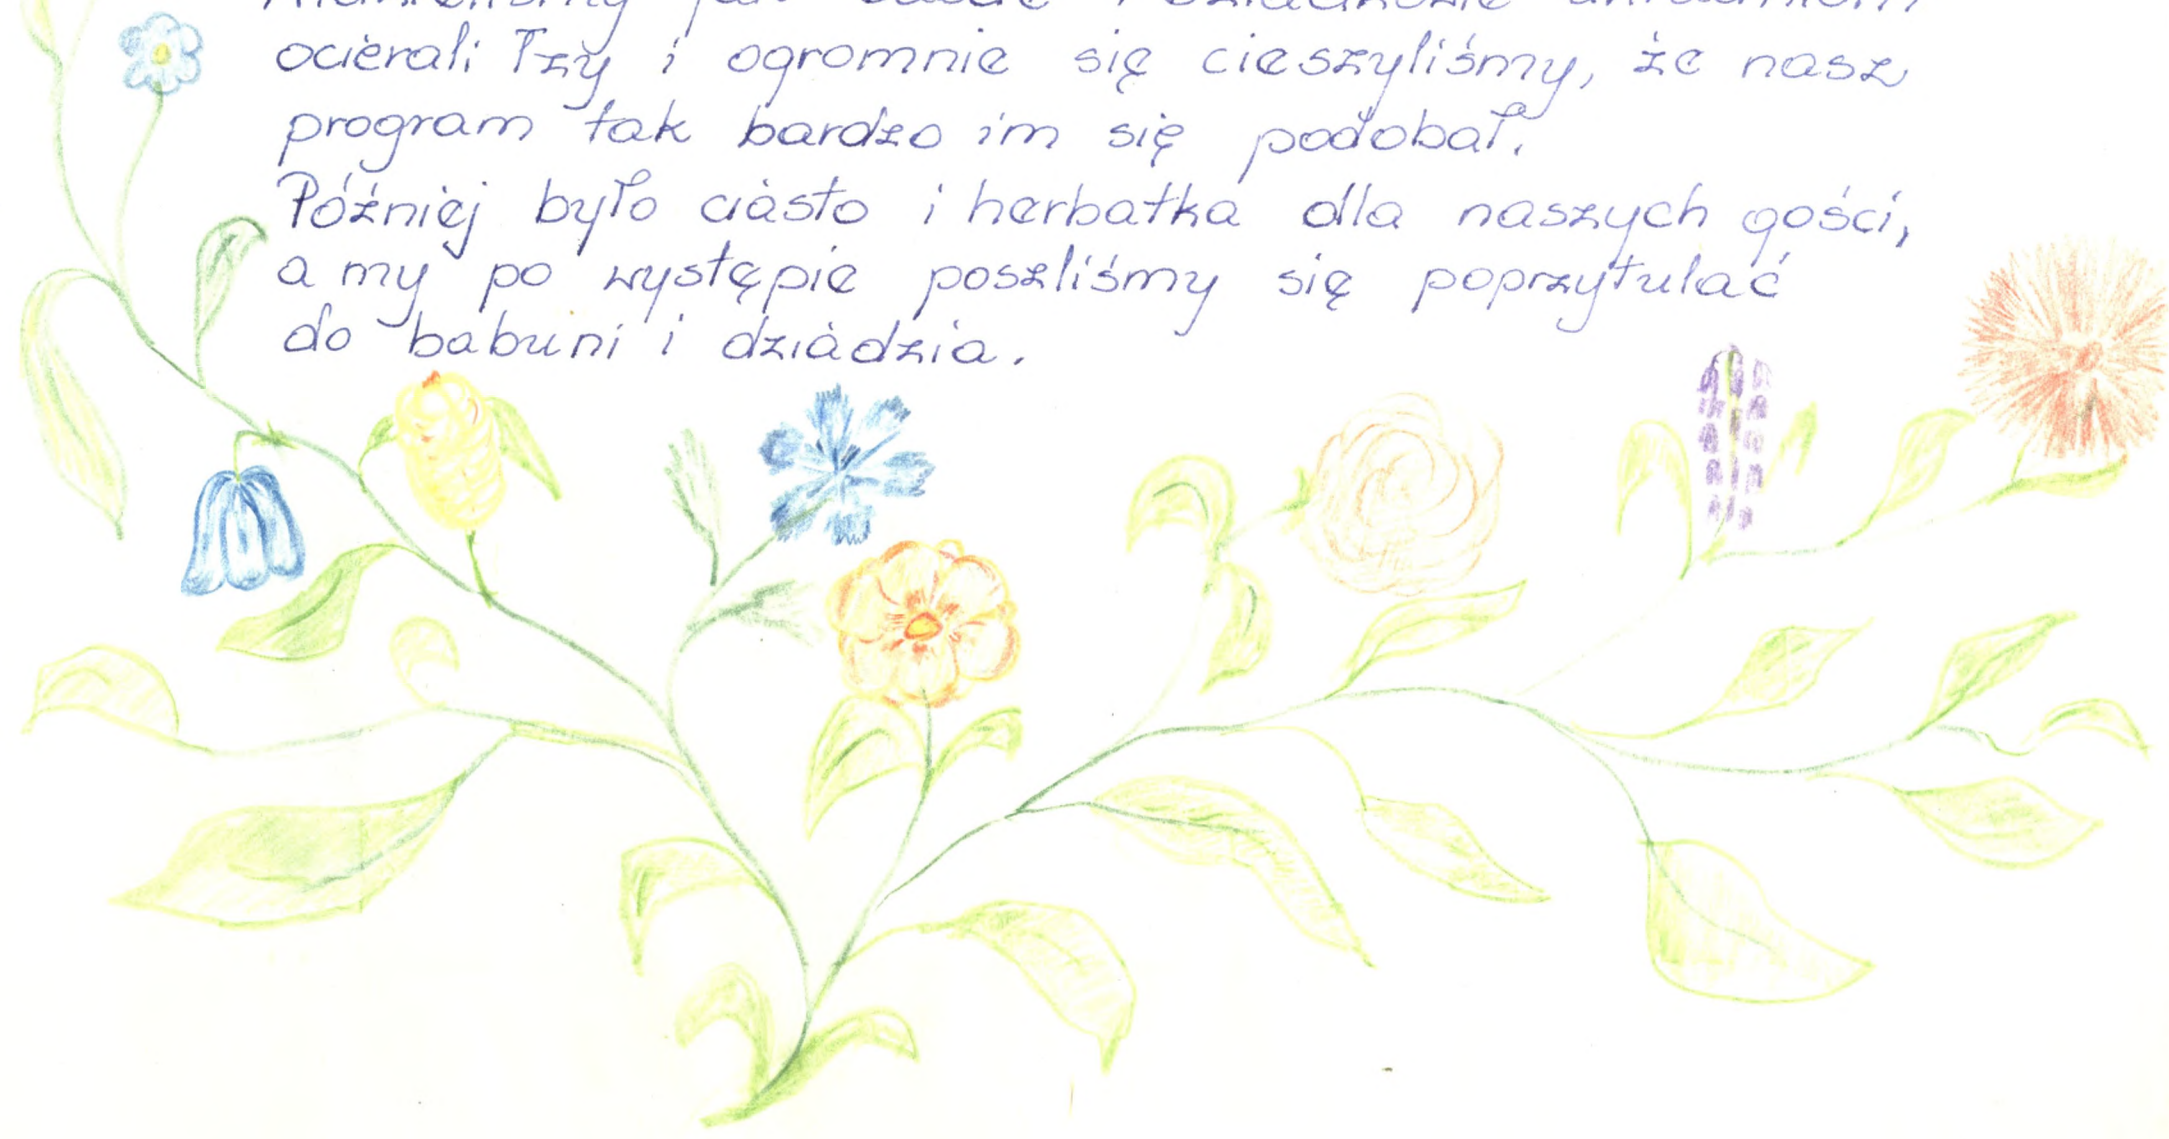 i
ocierali łzy i ogromnie się cieszyliśmy, że nasz
program tak bardzo im się podobał.
Później było ciasto i herbatka dla naszych gości,
a my po występie poszliśmy się poprzytulać
do babuni i dziadzia.